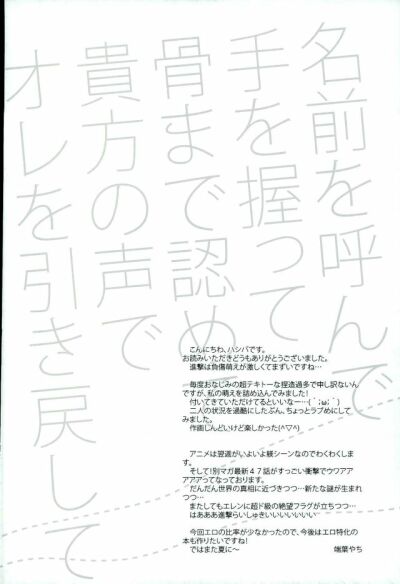 名前を呼んで
手を握って
骨まで認めて
貴方の声で
オレを引き戻して
こんにちわ、ハシバです。
お読みいただきどうもありがとうございました。
進撃は負傷萌えが激しくてまずいですね…
毎度おなじみの超テキトーな捏造過多で申し訳ない
ですが、私の萌えを詰め込んでみました!
付いてきていただけてるといいなー…(´;ω;`)
二人の状況を過酷にしたぶん、ちょっとラブめにして
みました。
作画しんどいけど楽しかった(^▽^)
アニメは翌週がいよいよ躾シーンなのでわくわくします。
そして!別マガ最新47話がすっごい衝撃でウワアア
アアアってなっております。
だんだん世界の真相に近づきつつ…新たな謎が生まれ
つつ…
またしてもエレンに超ド級の絶望フラグが立ちつつ…
はあああ進撃らいしゅきいいいいいい
今回エロの比率が少なかったので、今後はエロ特化の
本も作りたいですね!
ではまた夏に~
端葉やち